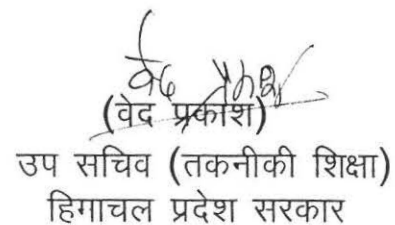 वेद प्रकाश
(वेद प्रकाश)
उप सचिव (तकनीकी शिक्षा)
हिमाचल प्रदेश सरकार